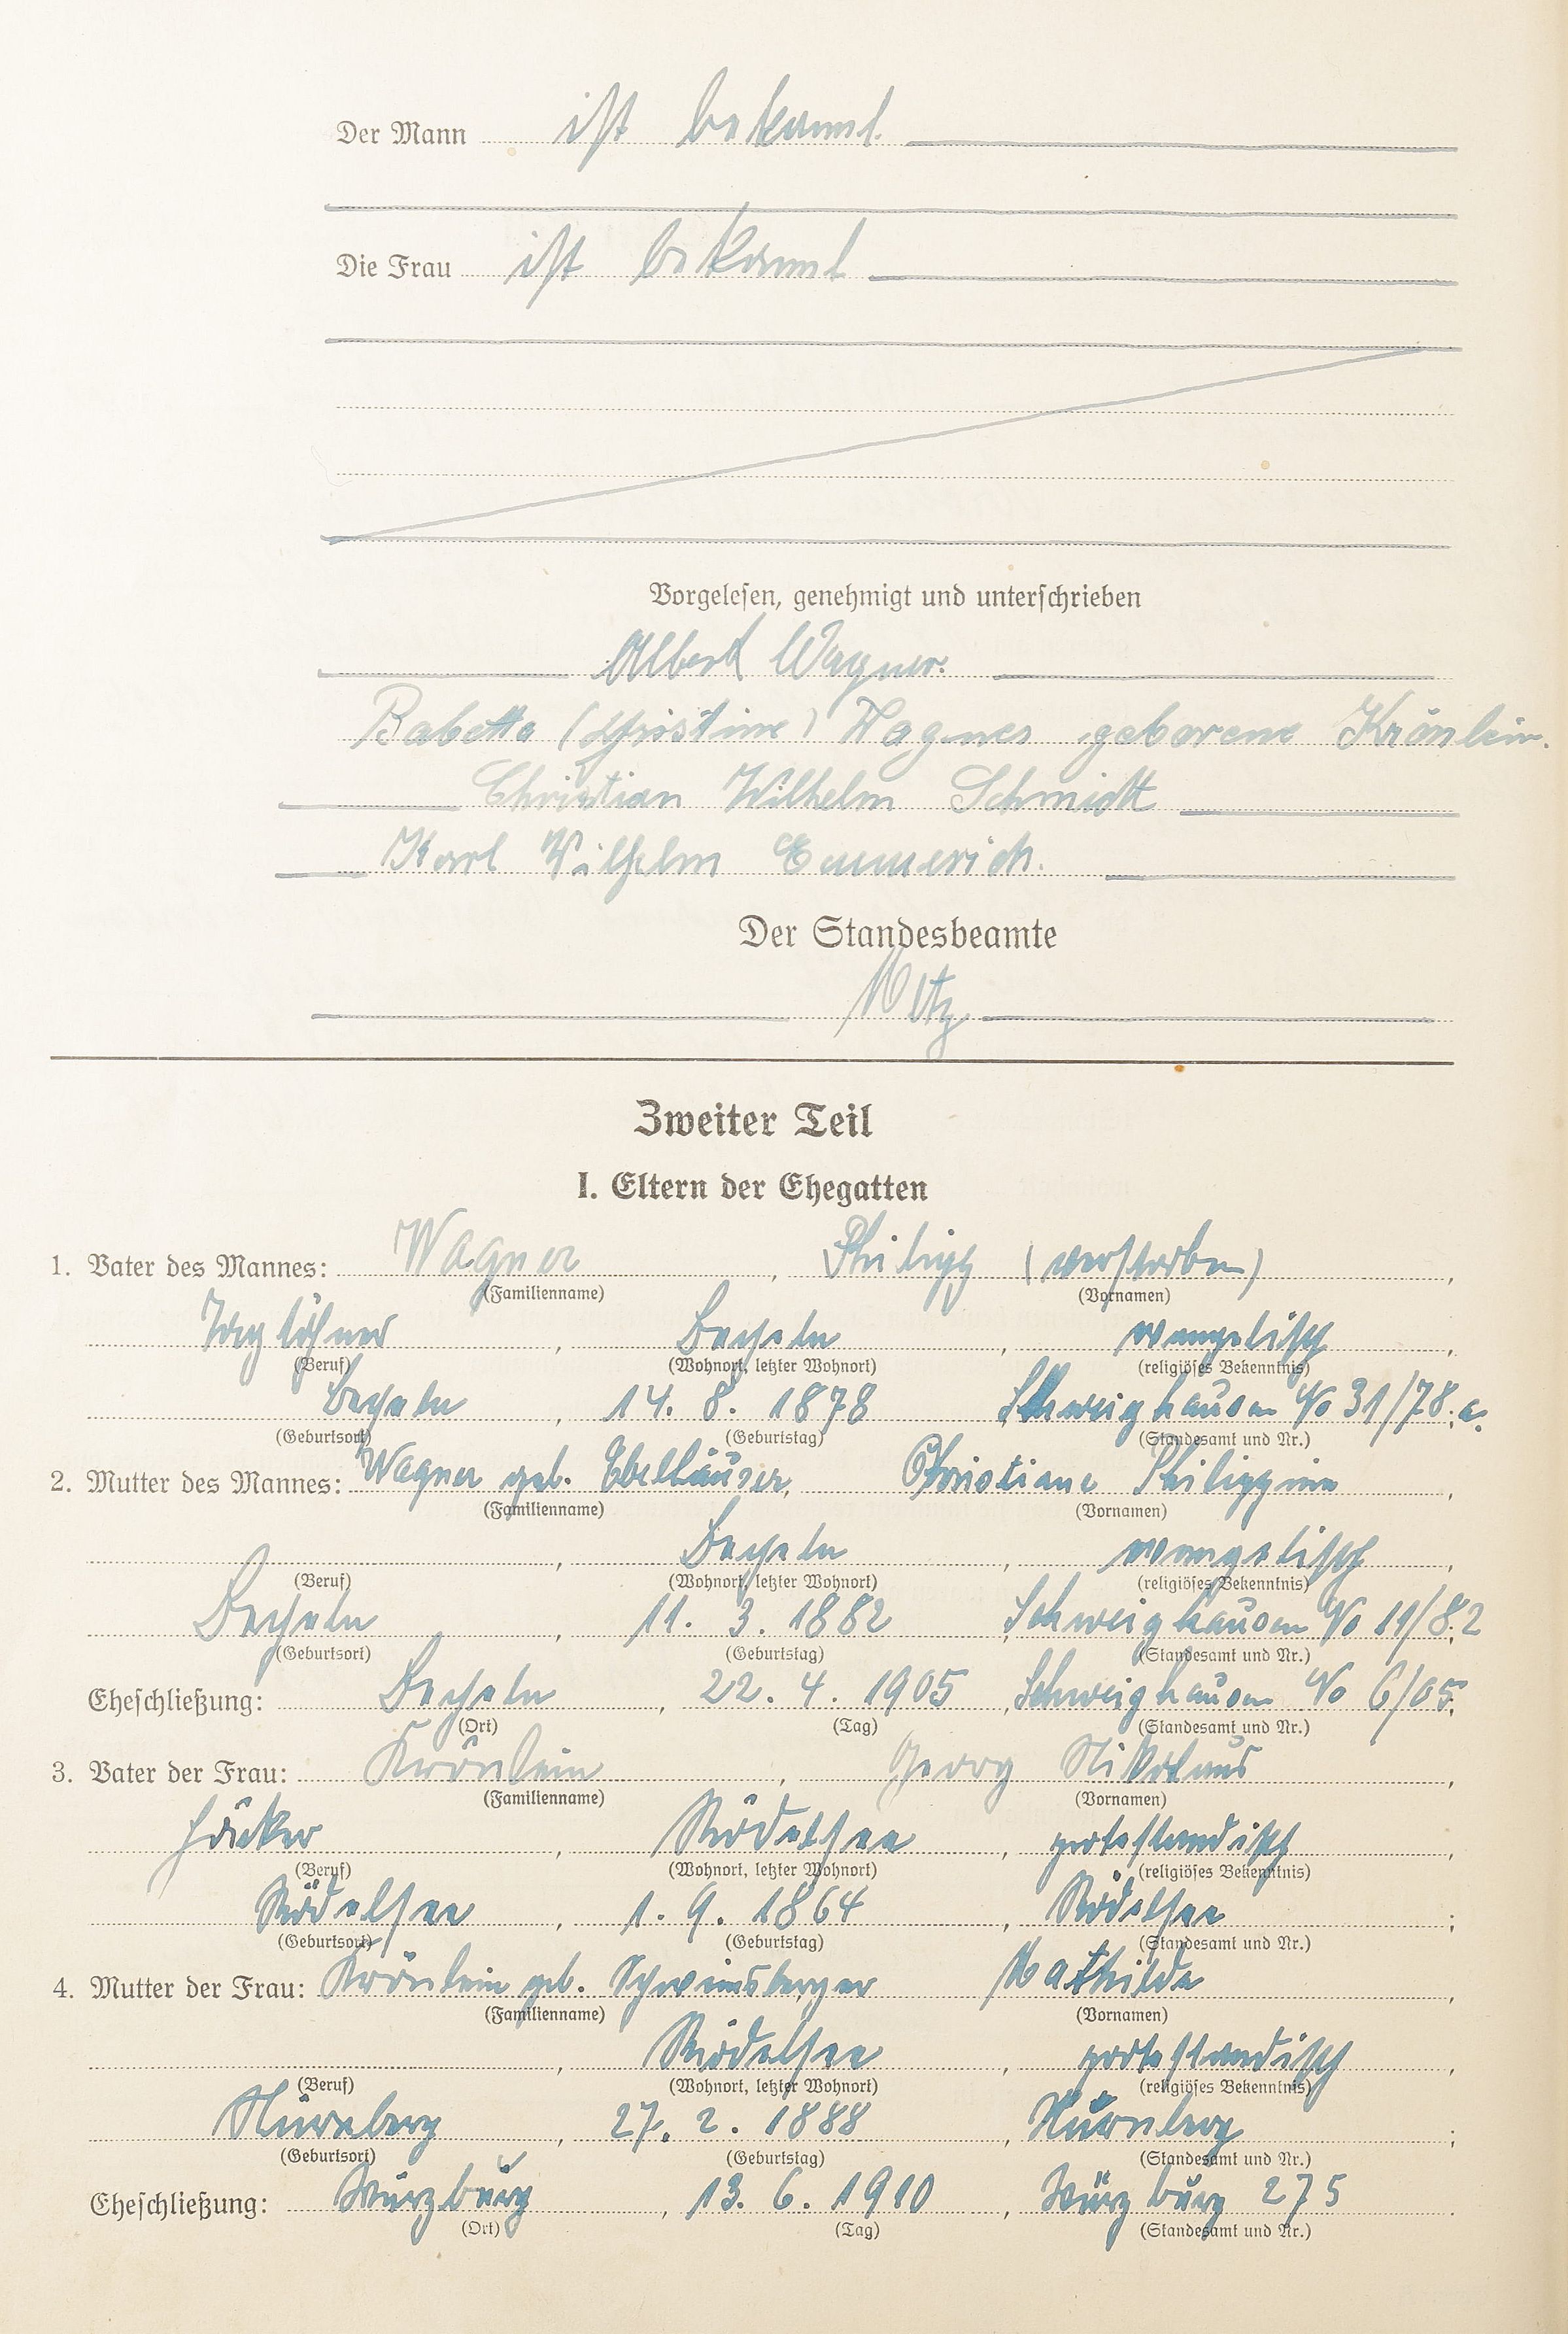 Der Mann ist bekannt.
Die Frau ist bekannt
Vorgelesen, genehmigt und unterschrieben
Albert Wagner.
Babette (Christine) Wagner geborene Krönlein.
Christian Wilhelm Schmidt
Karl Wilhelm Emmerich.
Der Standesbeamte
Zweiter Teil
I. Eltern der Ehegatten
1. Vater des Mannes: Wagner, Philipp (verstorben),
(Familienname) (Vornamen)
Taglöhner, Becheln, evangelisch,
(Beruf) (Wohnort, letzter Wohnort) (religiöses Bekenntnis)
Becheln, 14. 8. 1878 Schweighausen No 31/78.;
(Geburtsort) (Geburtstag) (Standesamt und Nr.)
2. Mutter des Mannes: Wagner geb. Ebelhäuser, Christiane Philippine,
(Familienname) (Vornamen)
, Becheln, evangelisch,
(Beruf) (Wohnort, letzter Wohnort) (religiöses Bekenntnis)
Becheln, 11. 3. 1882, Schweighausen No 11/82;
(Geburtsort) (Geburtstag) (Standesamt und Nr.)
Eheschließung: Becheln, 22. 4. 1905, Schweighausen No 6/05.
(Ort) (Tag) (Standesamt und Nr.)
3. Vater der Frau: Krönlein, Georg Nikolaus,
(Familienname) (Vornamen)
Häcker, Rödelsee, protestandisch,
(Beruf) (Wohnort, letzter Wohnort) (religiöses Bekenntnis)
Rödelsee, 1. 9. 1864, Rödelsee;
(Geburtsort) (Geburtstag) (Standesamt und Nr.)
4. Mutter der Frau: Krönlein geb. Schwinsberger Mathilde,
(Familienname) (Vornamen)
, Rödelsee, protestandisch,
(Beruf) (Wohnort, letzter Wohnort) (religiöses Bekenntnis)
Nürnberg, 27. 2. 1888, Nürnberg;
(Geburtsort) (Geburtstag) (Standesamt und Nr.)
Eheschließung: Würzburg, 13. 6. 1910, Würzburg 275.
(Ort) (Tag) (Standesamt und Nr.)